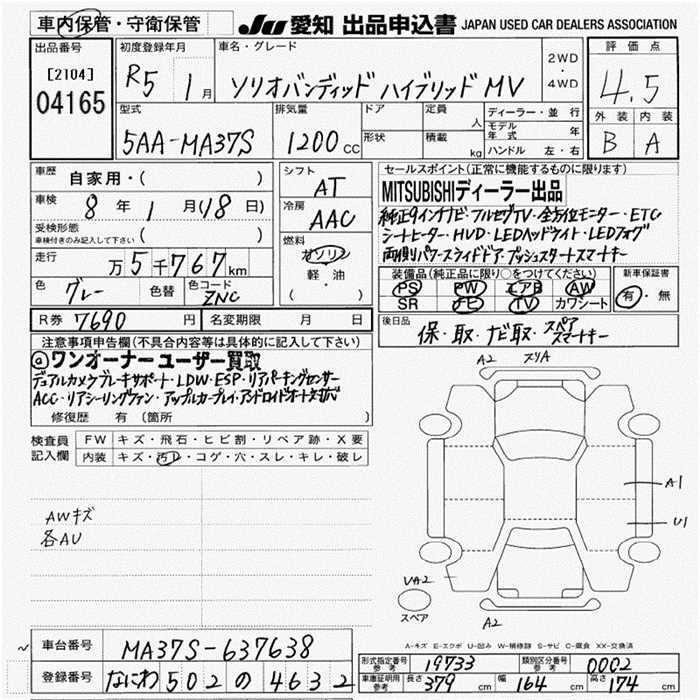 車内保管・守衛保管
JU 愛知 出品申込書 JAPAN USED CAR DEALERS ASSOCIATION
出品番号
[2104]
04165
初度登録年月
R5 1月
車名・グレード
ソリオバンディッド ハイブリッド MV
2WD
・
4WD
評価点
4.5
外装 内装
B A
型式
5AA-MA37S
排気量
1200 CC
ドア
形状
定員 人
積載 kg
ディーラー・並行
モデル年式 年
ハンドル 左・右
車歴 自家用・( )
車検 8年 1月(18日)
受検形態
車検付きのみ記入して下さい ( )
走行 万5千767km
色 グレー 色替 色コード ZNC
シフト
AT
冷房
AAC
燃料
ガソリン
軽・油
( )
セールスポイント(正常に機能するものに限ります)
MITSUBISHIディーラー出品
純正9インチナビ・フルセグTV・全方位モニター・ETC
シートヒーター・HUD・LEDヘッドライト・LEDフォグ
両側パワースライドドア・プッシュスタートスマートキー
装備品(純正品に限り○をつけてください)
PS PW エアB AW
SR ナビ TV カワシート
新車保証書
有・無
R券 7690 円 名変期限 月 日
後日品 保・取・ナビ取・スペアスマートキー
注意事項申告欄(不具合内容等は具体的に記入して下さい)
@ワンオーナーユーザー買取
デュアルカメラブレーキサポート・LDW・ESP・リアパーキングセンサー
ACC・リアシーリングファン・アップルカープレイ・アンドロイドオート対応
修復歴 有 (箇所 )
検査員
記入欄
FW キズ・飛石・ヒビ割・リペア跡・X要
内装 キズ・汚レ・コゲ・穴・スレ・キレ・破レ
AWキズ
各AU
A2 スリA
A1
U1
UA2
スペア
A2
A-キズ E-エクボ U-凹み W-補修跡 S-サビ C-腐食 XX-交換済
~ 車台番号 MA37S-637638
登録番号 なにわ 502 の 4632
形式指定番号 参考 19733 類別区分番号 参考 0002
車庫証明用 参考 長さ 379 cm 幅 164 cm 高さ 174 cm